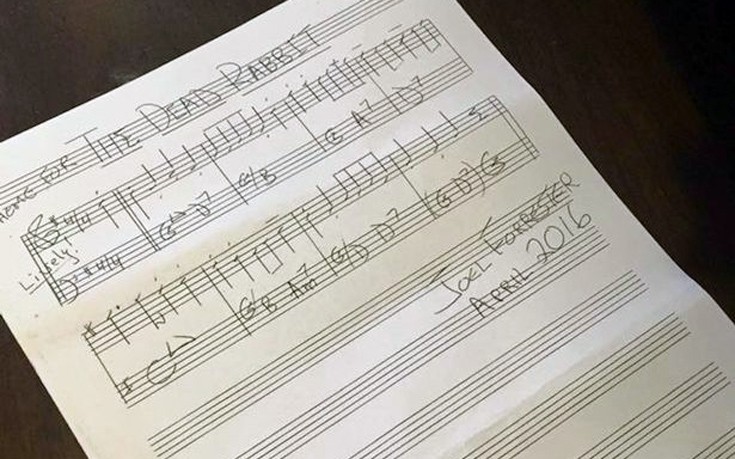 THEME FOR THE DEAD RABBIT
4/4
Lively
4/4
G D7 G/B G A7 D7
C G/B Am7 G/D D7 (G D7) G
JOEL FORRESTER
APRIL 2016